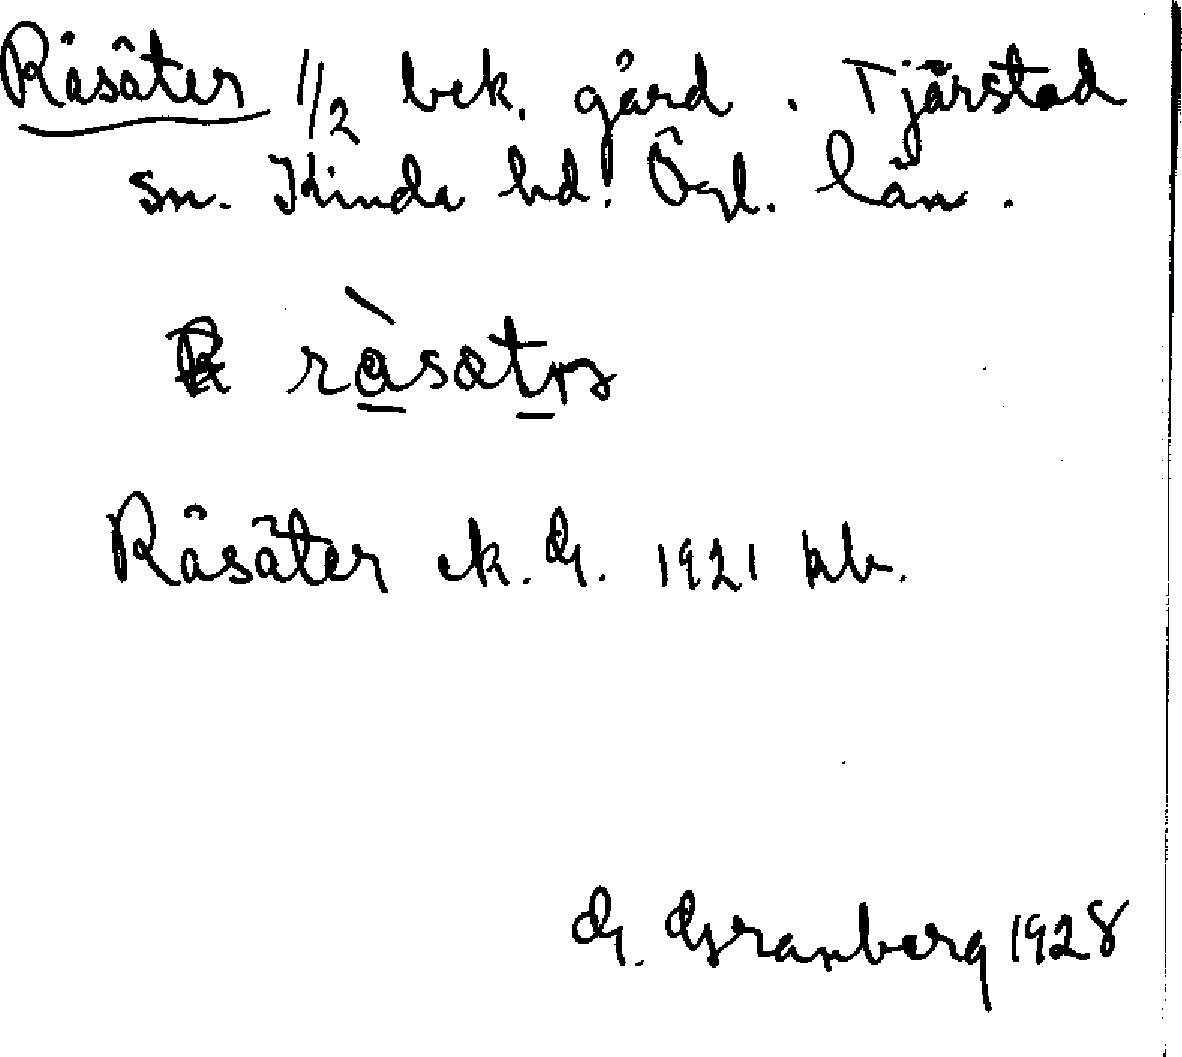 Råsäter 1/2 bek. gård. Tjärstad
sn. Kinda hd. Ögl. län.
Råsäter ek. G. 1921 kb.
G. Granberg 1928